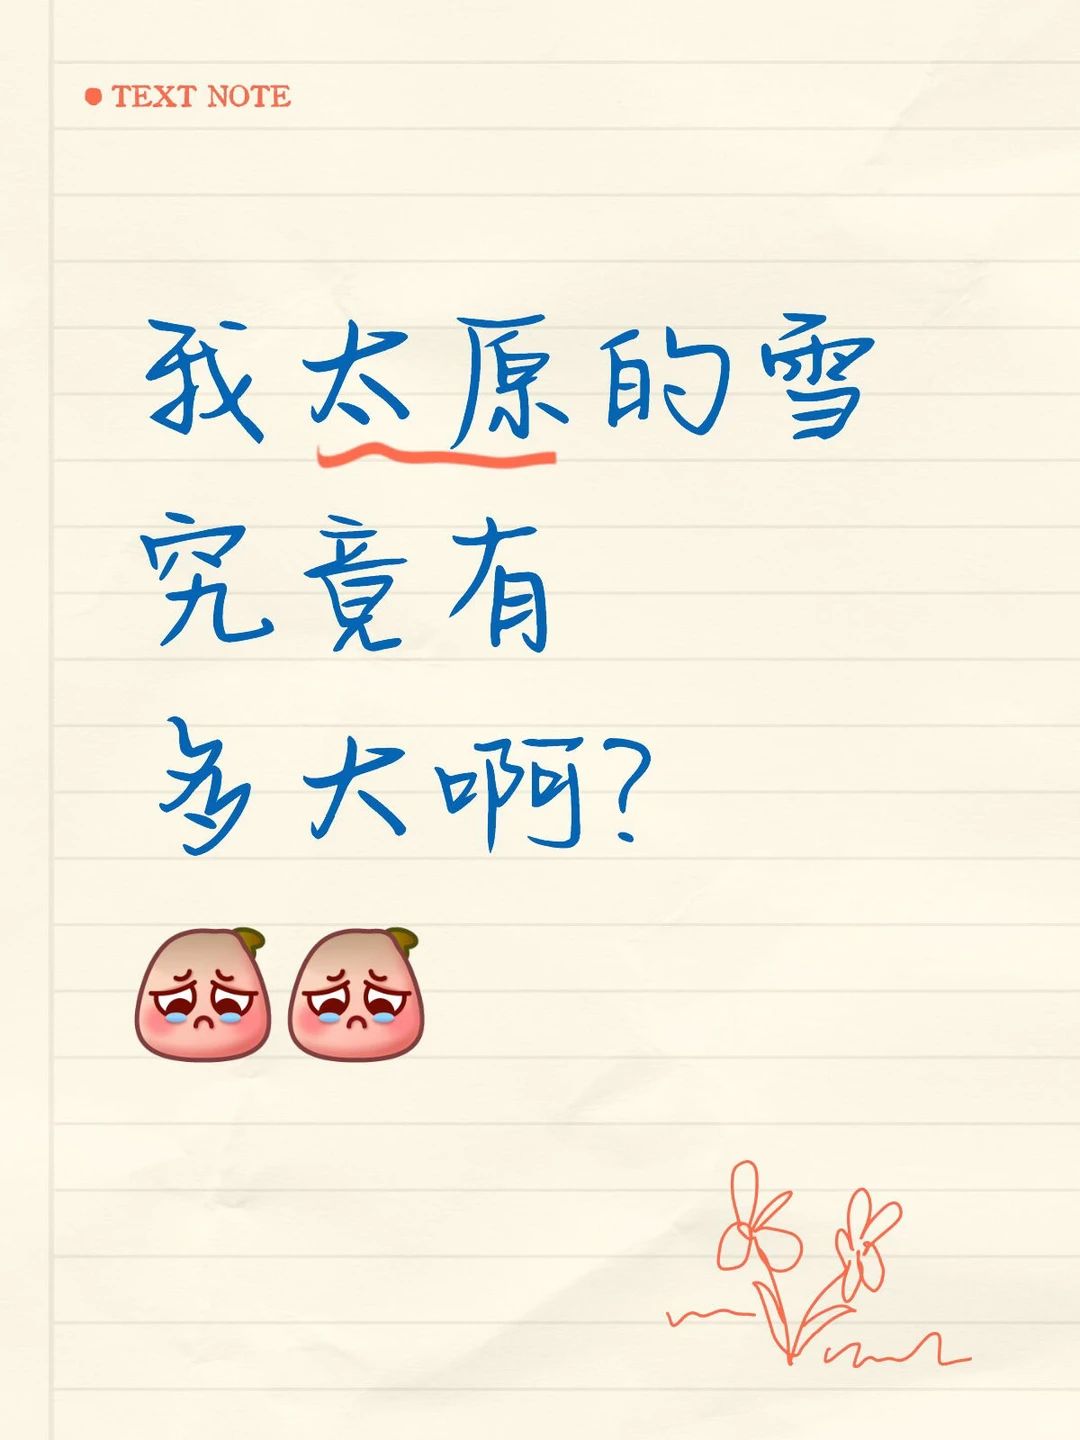 TEXT NOTE
我太原的雪
究竟有
多大啊?